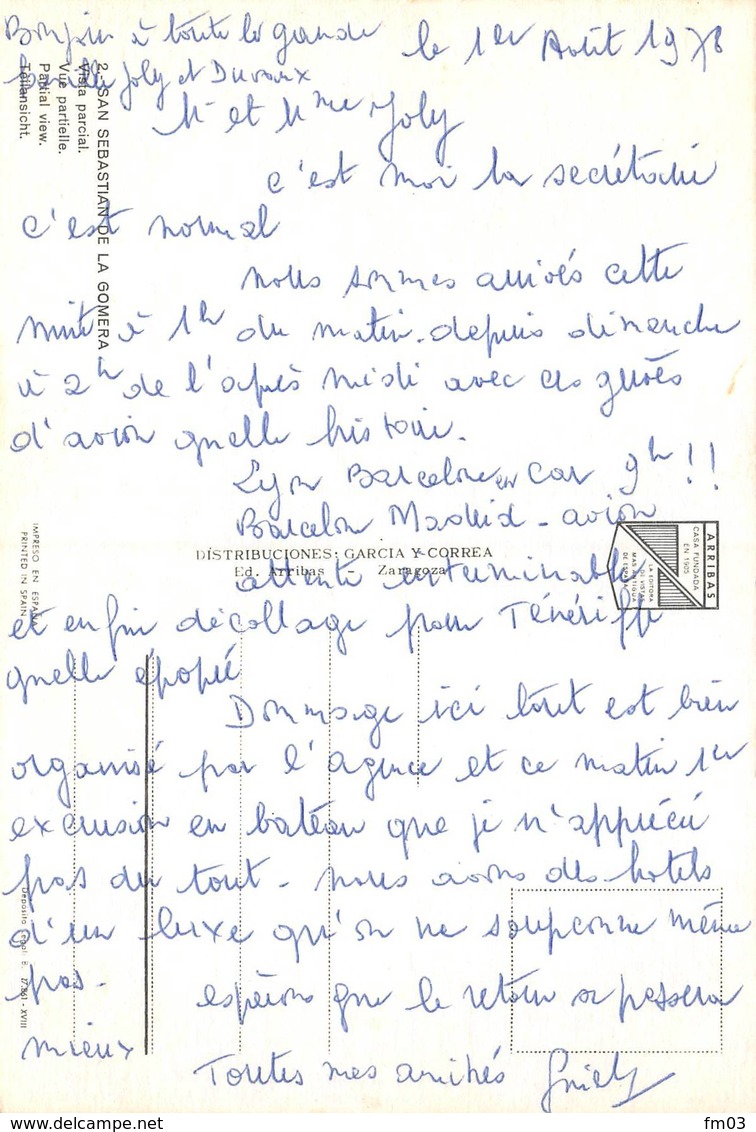 à toute la grande le 1er Août 1978
famille Joly et Duvaux
Mr et Mme Joly
c'est moi la secrétaire
c'est normal
nous sommes arrivés cette
nuit à 1h du matin. depuis dimanche
à 2h de l'après midi avec ces grèves
d'avion quelle histoire.
Lyon Barcelone en car 9h !!
Barcelone Madrid - avion
attente interminable
et enfin décollage pour Ténériffe
quelle épopée
Dommage ici tout est bien
organisé par l'agence et ce matin 1er
excursion en bateau que je n'apprécie
pas du tout - nous avons des hotels
d'un luxe qu'on ne soupconne même
pas -
espérons que le retour se passera
mieux
Toutes mes amitiés
2.- SAN SEBASTIAN DE LA GOMERA
Vista parcial.
Vue partielle.
Partial view.
Teilansicht.
IMPRESO EN ESPAÑA
PRINTED IN SPAIN
DISTRIBUCIONES: GARCIA Y CORREA
Ed. Arribas - Zaragoza
ARRIBAS
CASA FUNDADA
EN 1905
LA EDITORA
DE VISTAS
MAS ANTIGUA
DE ESPAÑA
Depósito Legal: B. 17.861 - XVIII
www.delcampe.net
fm03